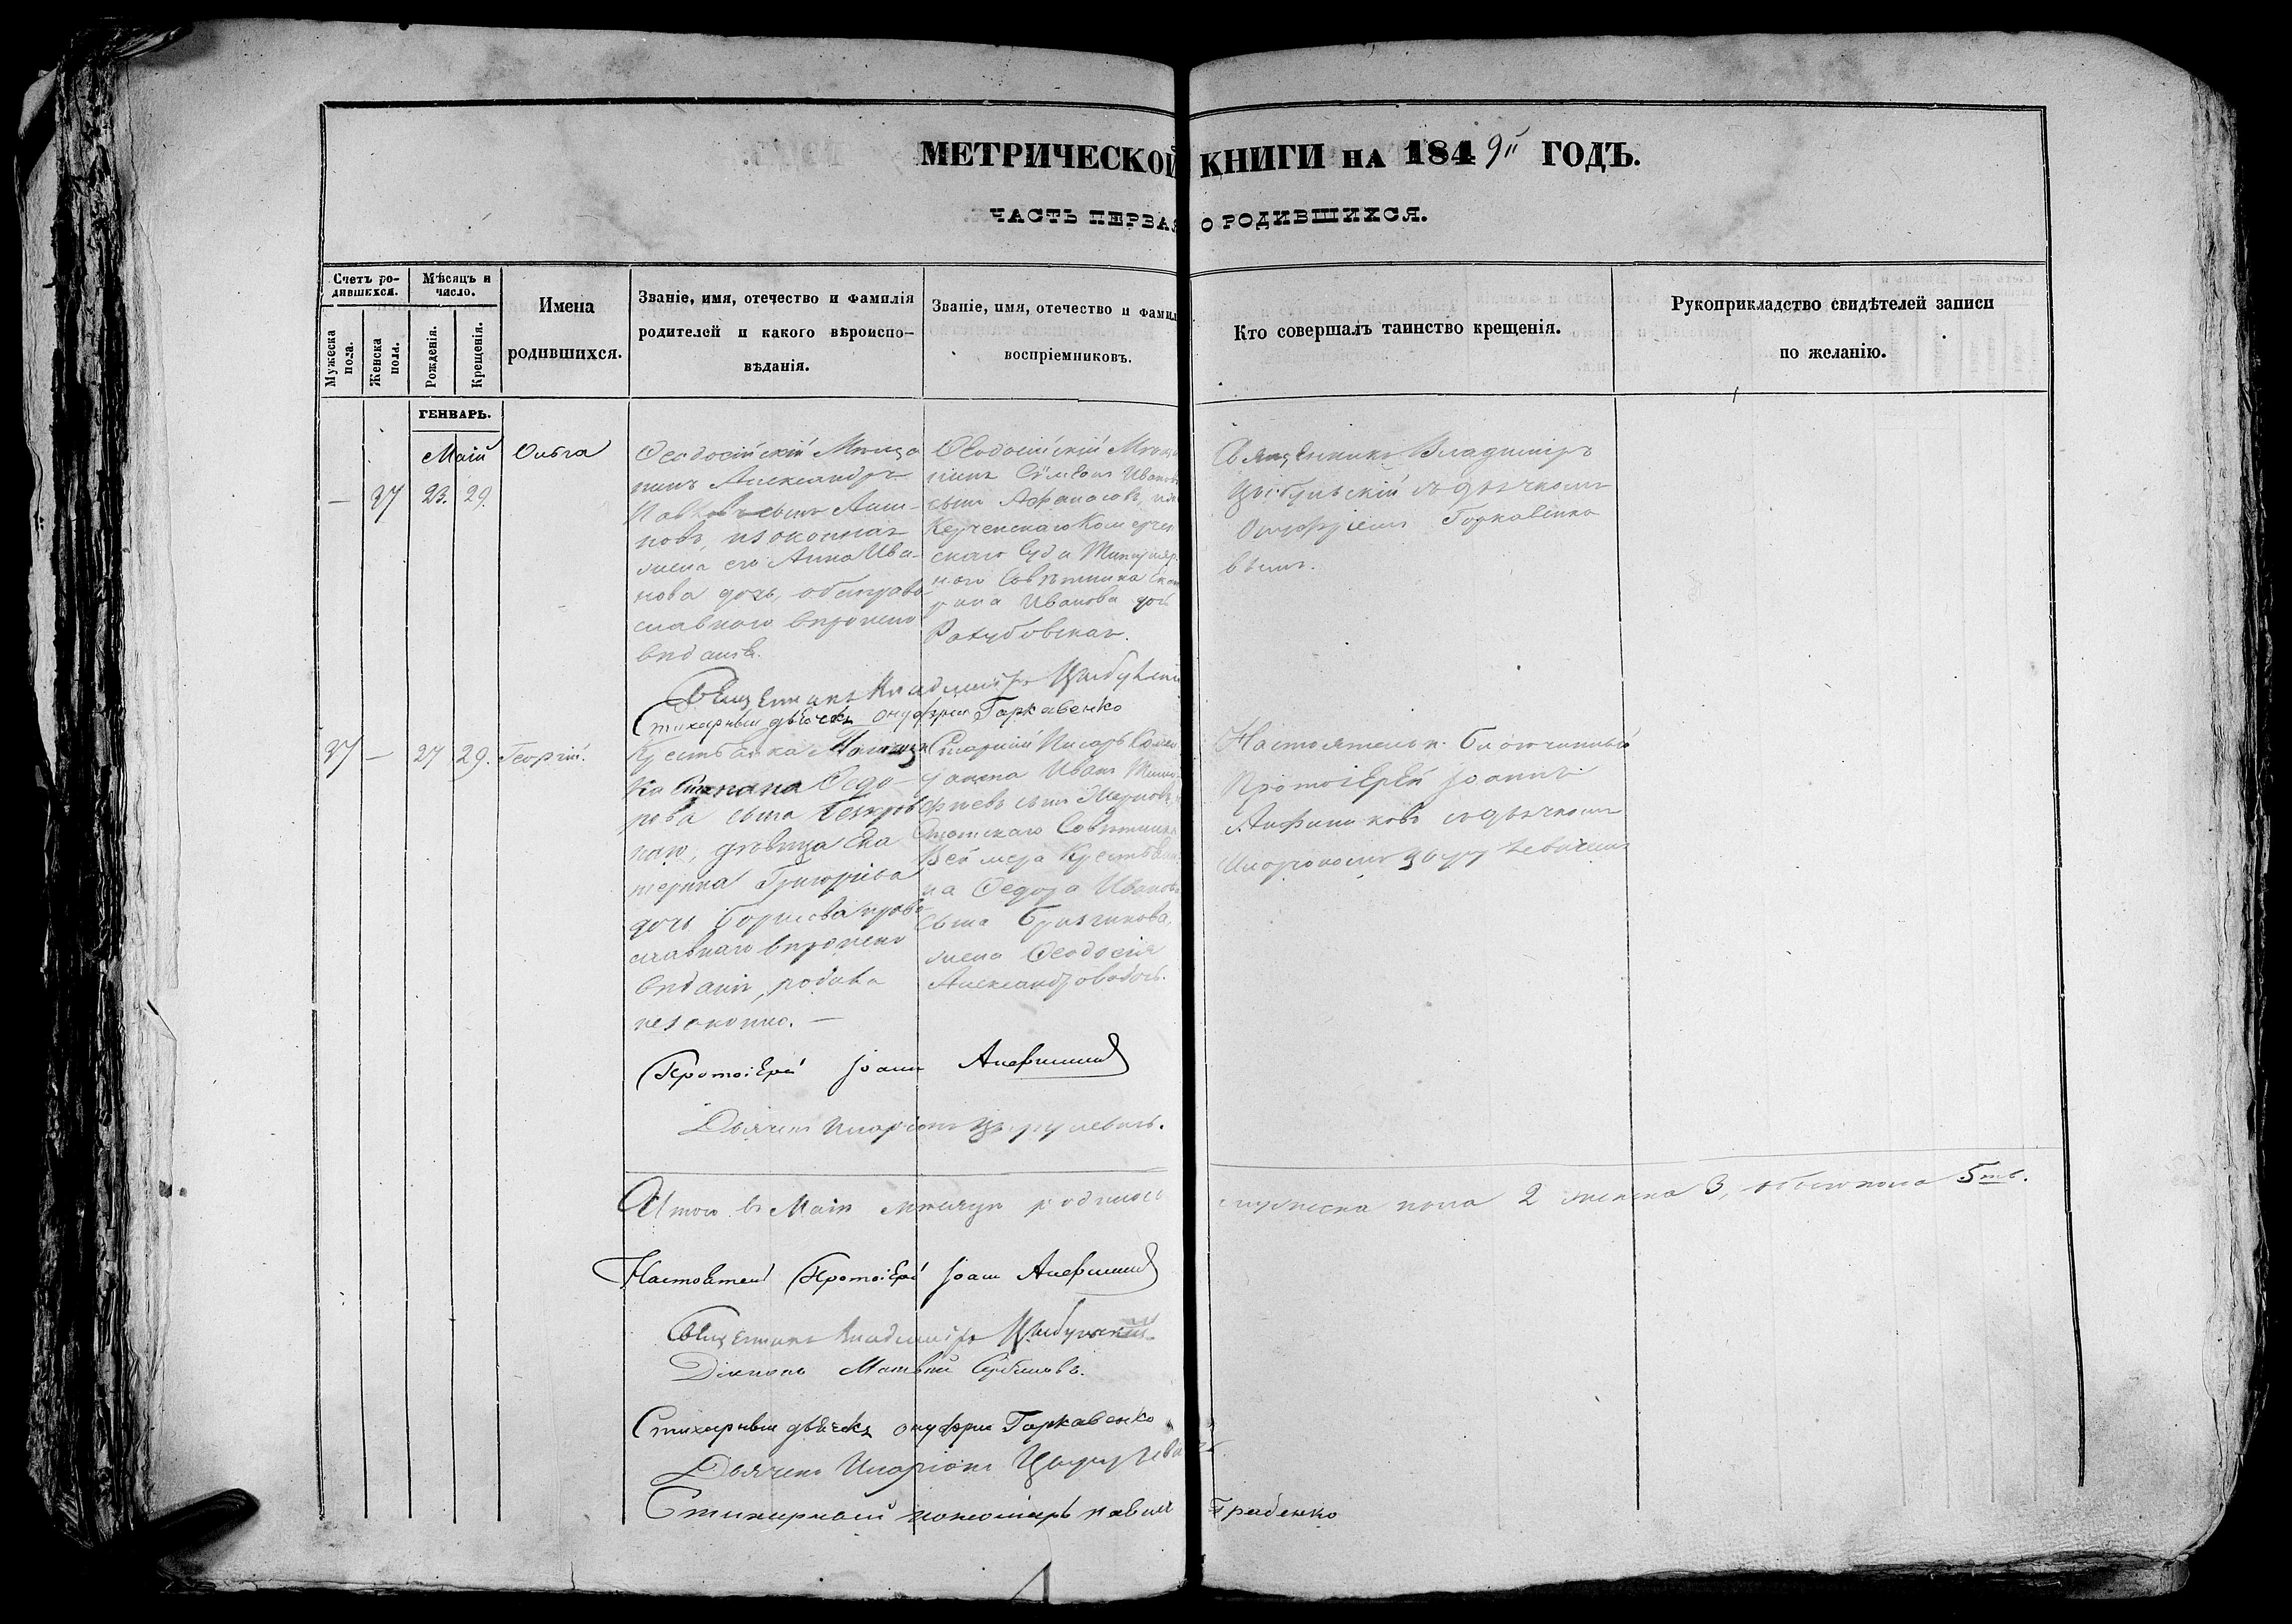 МЕТРИЧЕСКОЙ КНИГИ НА 1849й ГОДЪ.
ЧАСТЬ ПЕРВАЯ О РОДИВШИХСЯ.
Счетъ ро-
дившихся.
Мужеска
пола.
Женска
пола.
Мѣсяцъ и
число.
Рожденія.
Крещенія.
Имена
родившихся.
Званіе, имя, отечество и фамилія
родителей и какого вѣроиспо-
вѣданія.
Званіе, имя, отечество и фамил
воспріемниковъ.
Кто совершалъ таинство крещенія.
Рукоприкладство свидѣтелей записи
по желанію.
ГЕНВАРЬ.
Маій
— 37 23. 29.
Ольга
Ѳеодосійскій Мѣща
нинъ Александръ
сынъ
новъ, изаконная
жена его Анна Ива-
нова дочь, оба право-
славнаго вѣроиспо
вѣданія.
Ѳеодосійскій Мѣща
нинъ Сѵмеонъ Иванов
сынъ
Керченскаго Комерче
скаго Суда Титуляр
наго Совѣтника Ека
рина Иванова дочь
Священникъ Владиміръ
Цыбульскій съ дьячкомъ
Онуфріемъ Горкавенко
вымъ.
Священникъ Владиміръ Цыбульскій
Стихарный дьячекъ Онуфрій Гаркавенко
37 — 27 29. Георгій.
Крестьянка
Степана Ѳедо
рова сына
наго, дѣвица Ека
терина Григорьева
дочь Борисова право
славнаго вѣроиспо
вѣданія, родила
незаконно. —
Старшій Писарь
Иванъ Тимо
фѣевъ сынъ
Статскаго Совѣтника
Крестьяни
на Ѳедора Иванова
сына
жена Ѳеодосія
Александрова дочь.
Настоятель Благочинный
Протоіерей Іоаннъ
съ дьячкомъ
Иларіономъ
Протоіерей Іоаннъ
Дьячекъ Иларіонъ Цырулевичъ.
Итого въ Маіи мѣсяцѣ родилось мужеска пола 2 женска 3, обоего пола 5ть.
Настоятель Протоіерей Іоаннъ
Священникъ Владиміръ Цыбульскій
Діаконъ Матвѣй
Стихарный дьячекъ Онуфрій Гаркавенко
Дьячекъ Иларіонъ Цырулевичъ
Стихарный пономарь Павелъ Грабенко